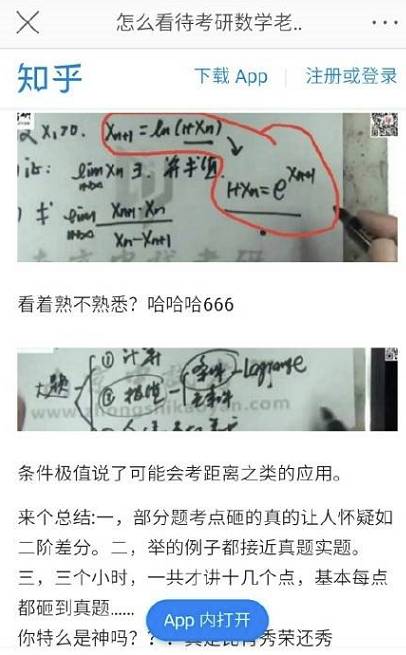 怎么看待考研数学老..
知乎
下载 App
注册或登录
X₁>0. Xn+1 = ln(1+Xn)
证: lim Xn ∃. 并求值
n→∞
1+Xn = e^Xn+1
求 lim Xn+1·Xn / Xn-Xn+1
n→∞
看着熟不熟悉？哈哈哈666
① 计算
大题
② 极值
条件 - Lagrange
无条件
条件极值说了可能会考距离之类的应用。
来个总结:一，部分题考点砸的真的让人怀疑如
二阶差分。二，举的例子都接近真题实题。
三，三个小时，一共才讲十几个点，基本每点
都砸到真题......
App 内打开
你特么是神吗？？
秀荣还秀